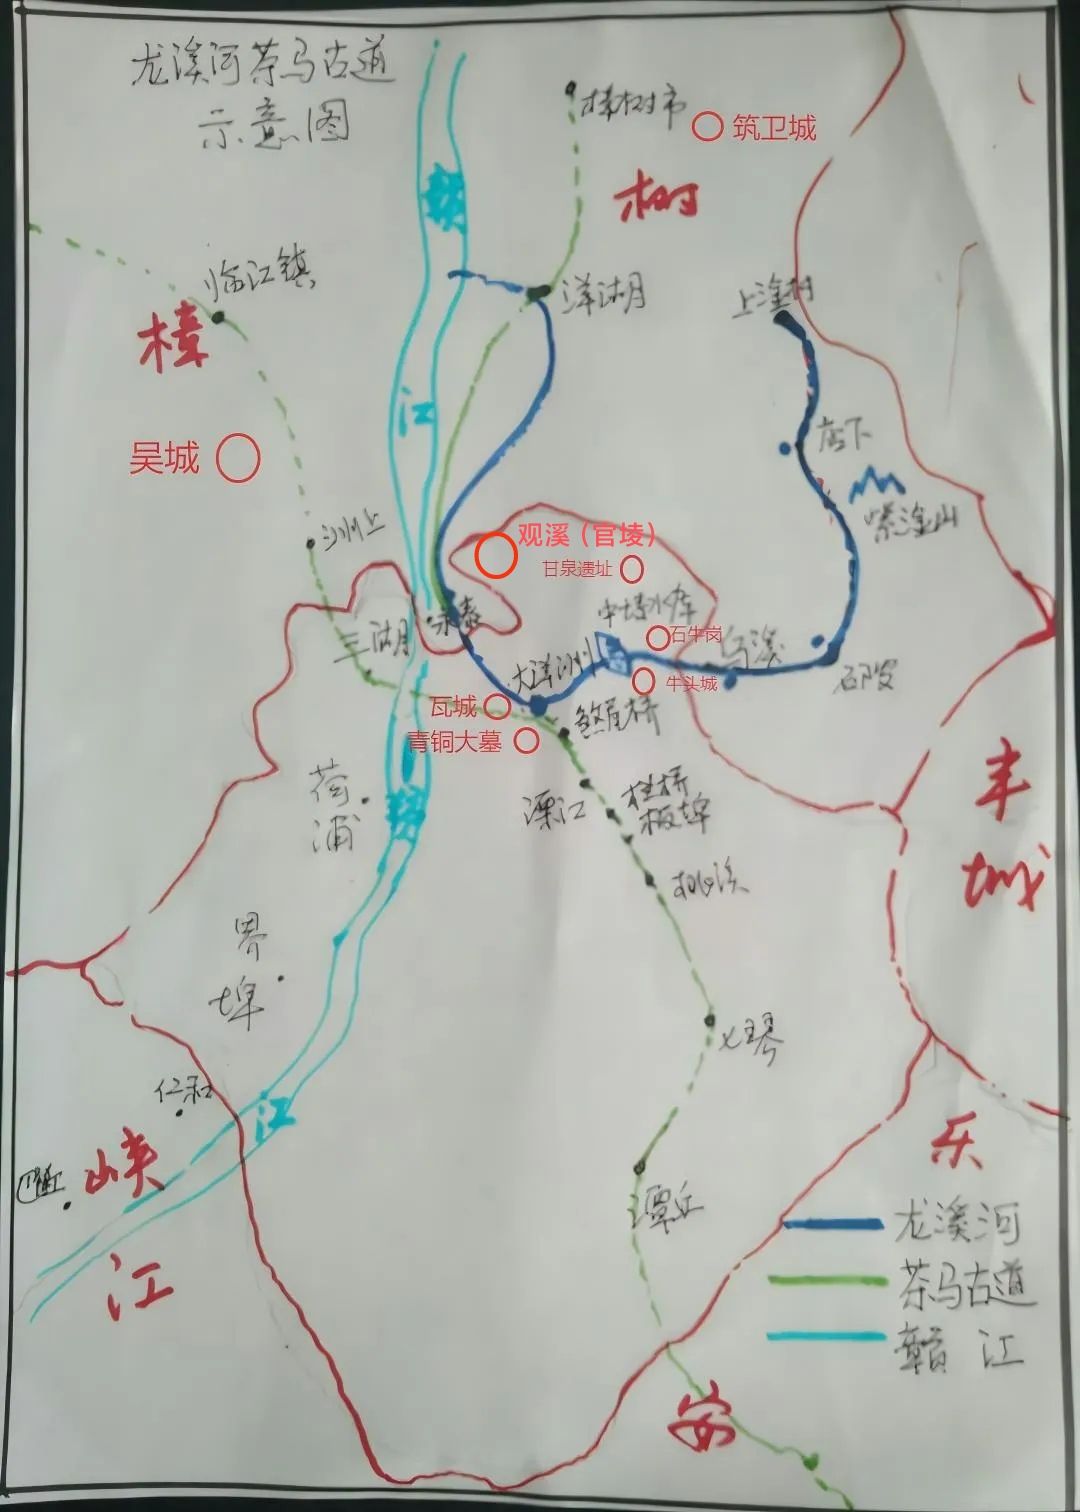 龙溪河茶马古道
示意图
樟树市
筑卫城
树
赣
临江镇
洋湖
上洤村
樟
江
店下
吴城
紫洤山
沙州上
观溪（官堎）
甘泉遗址
中堎水库
石牛岗
永泰
三湖
乌溪
大洋洲
牛头城
瓦城
青铜大墓
桥
丰
城
荷
浦
赣
溧江
桂桥
板埠
桃溪
界
埠
七琴
仁和
江
乐
峡
江
巴邱
潭丘
龙溪河
茶马古道
赣 江
安